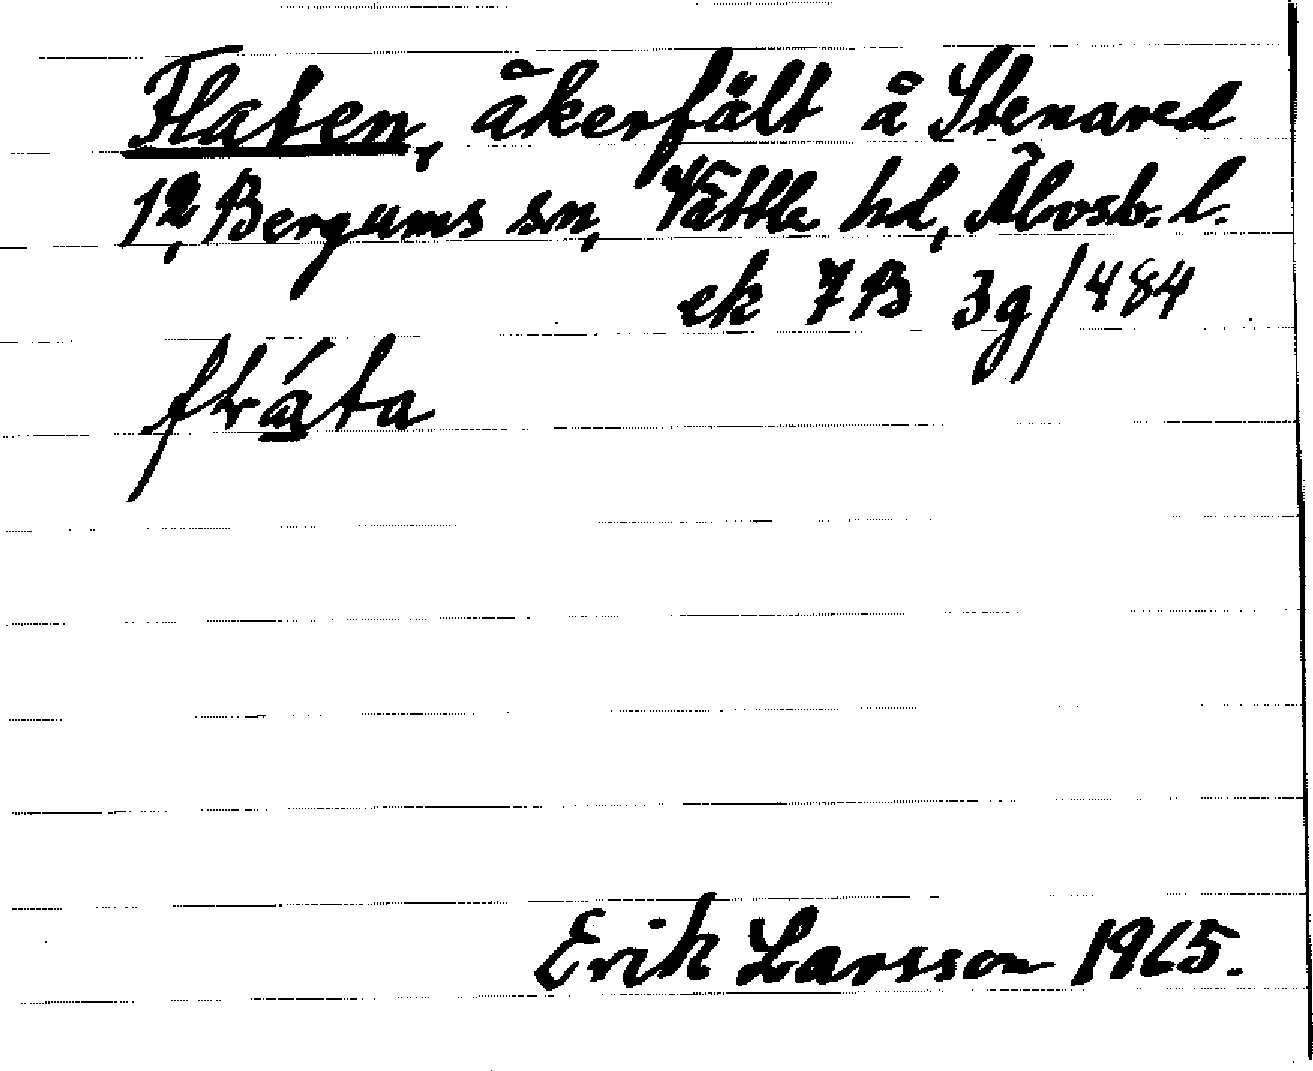 Flaten, åkerfält å Stenared
12, Bergums sn, Vättle hd, Älvsb. l.
ek 7B 3g/484
fláta
Erik Larsson 1965.